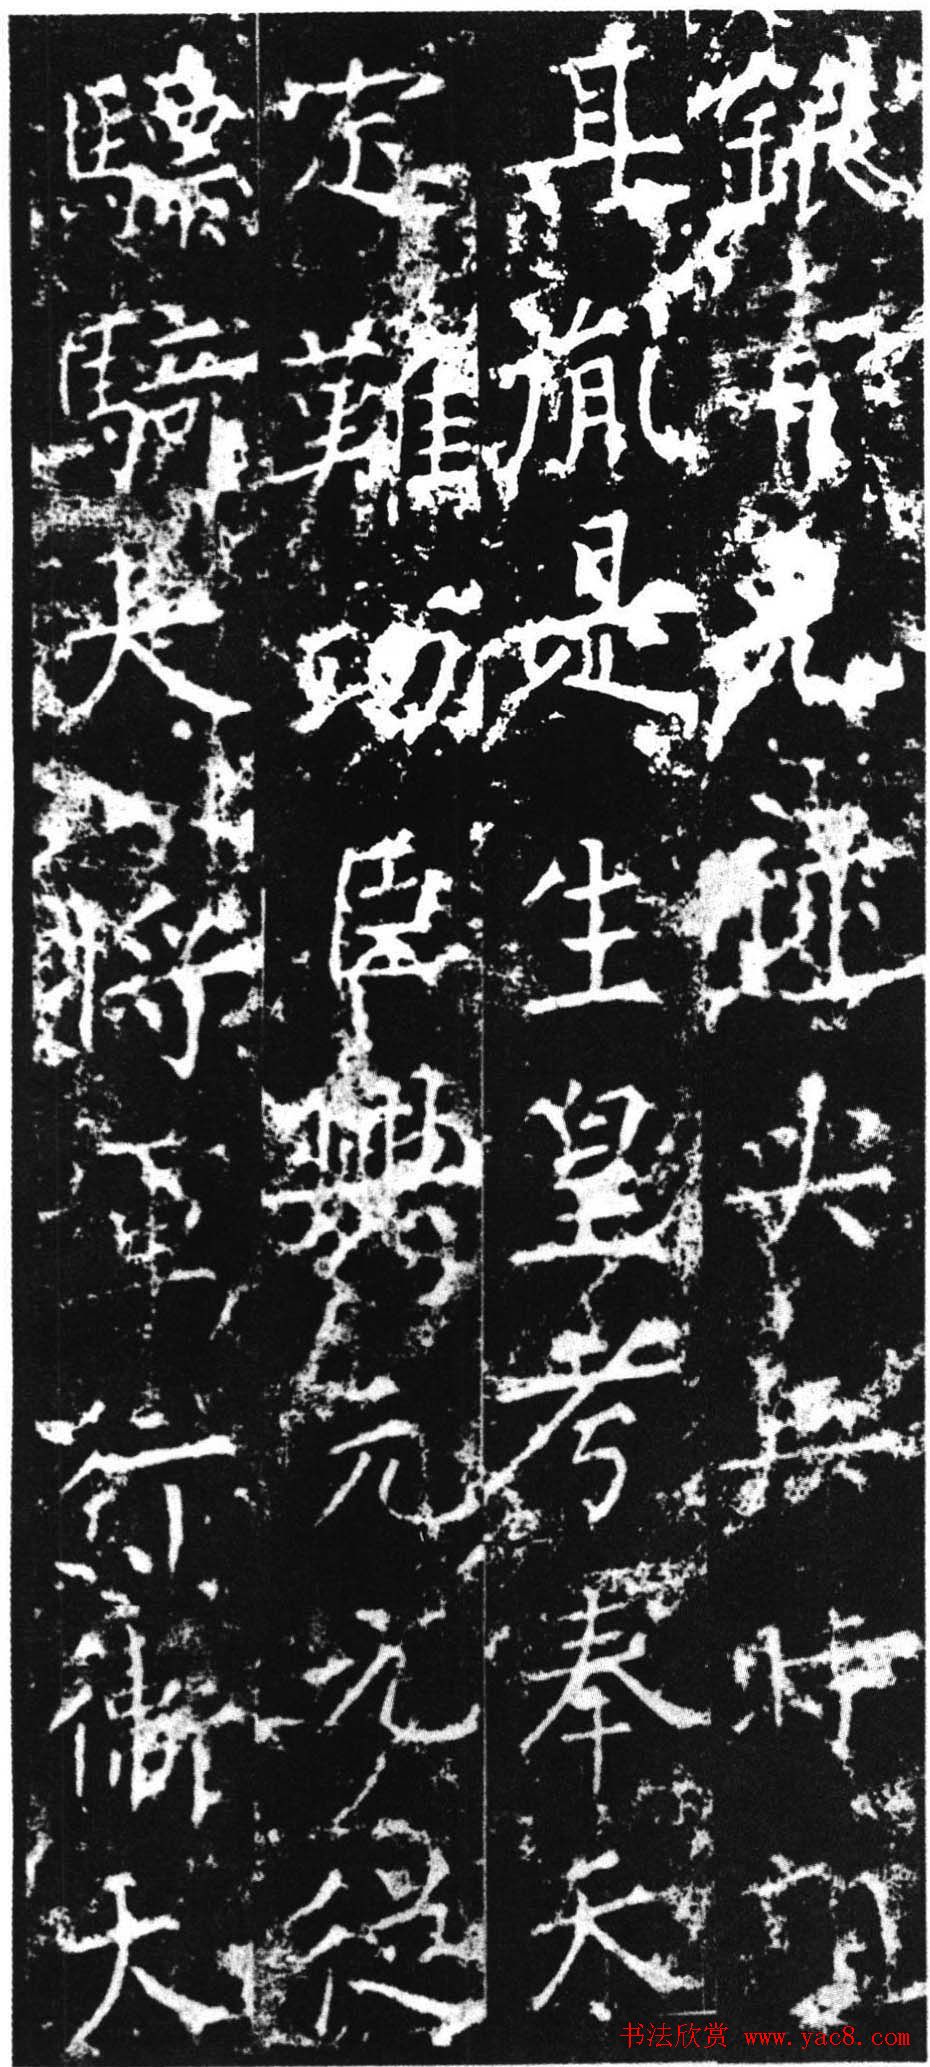 銀青光
且胤是生皇考奉天
定難功臣興元元從
驃騎大將軍行衛大
书法欣赏 www.yac8.com